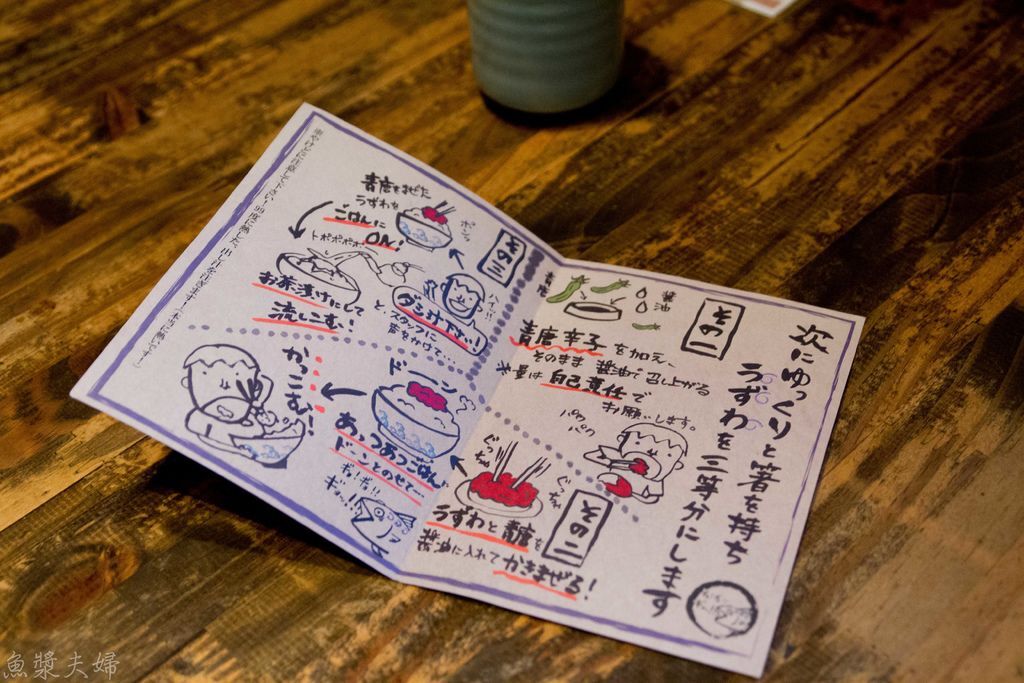 次にゆっくりと箸を持ち
うずわを三等分にします
その一
青唐
醤油
青唐辛子を加え、
そのまま醤油で召し上がる
*量は自己責任で
お願いします。
パク
パク
その二
ぐっちゃ
ぐっちゃ
うずわと青唐を
醤油に入れてかきまぜる!
ドーーン
あっつあつごはんに
ドーンとのせて…
ギョ!ギョ!!
ギョッ!!
かっこむ!
その三
青唐をまぜた
うずわを
ごはんに
ON!
ダシ汁下さい!
と、スタッフに
声をかけて…
トポポポポ…
お茶漬けにして
流しこむ!
魚漿夫婦